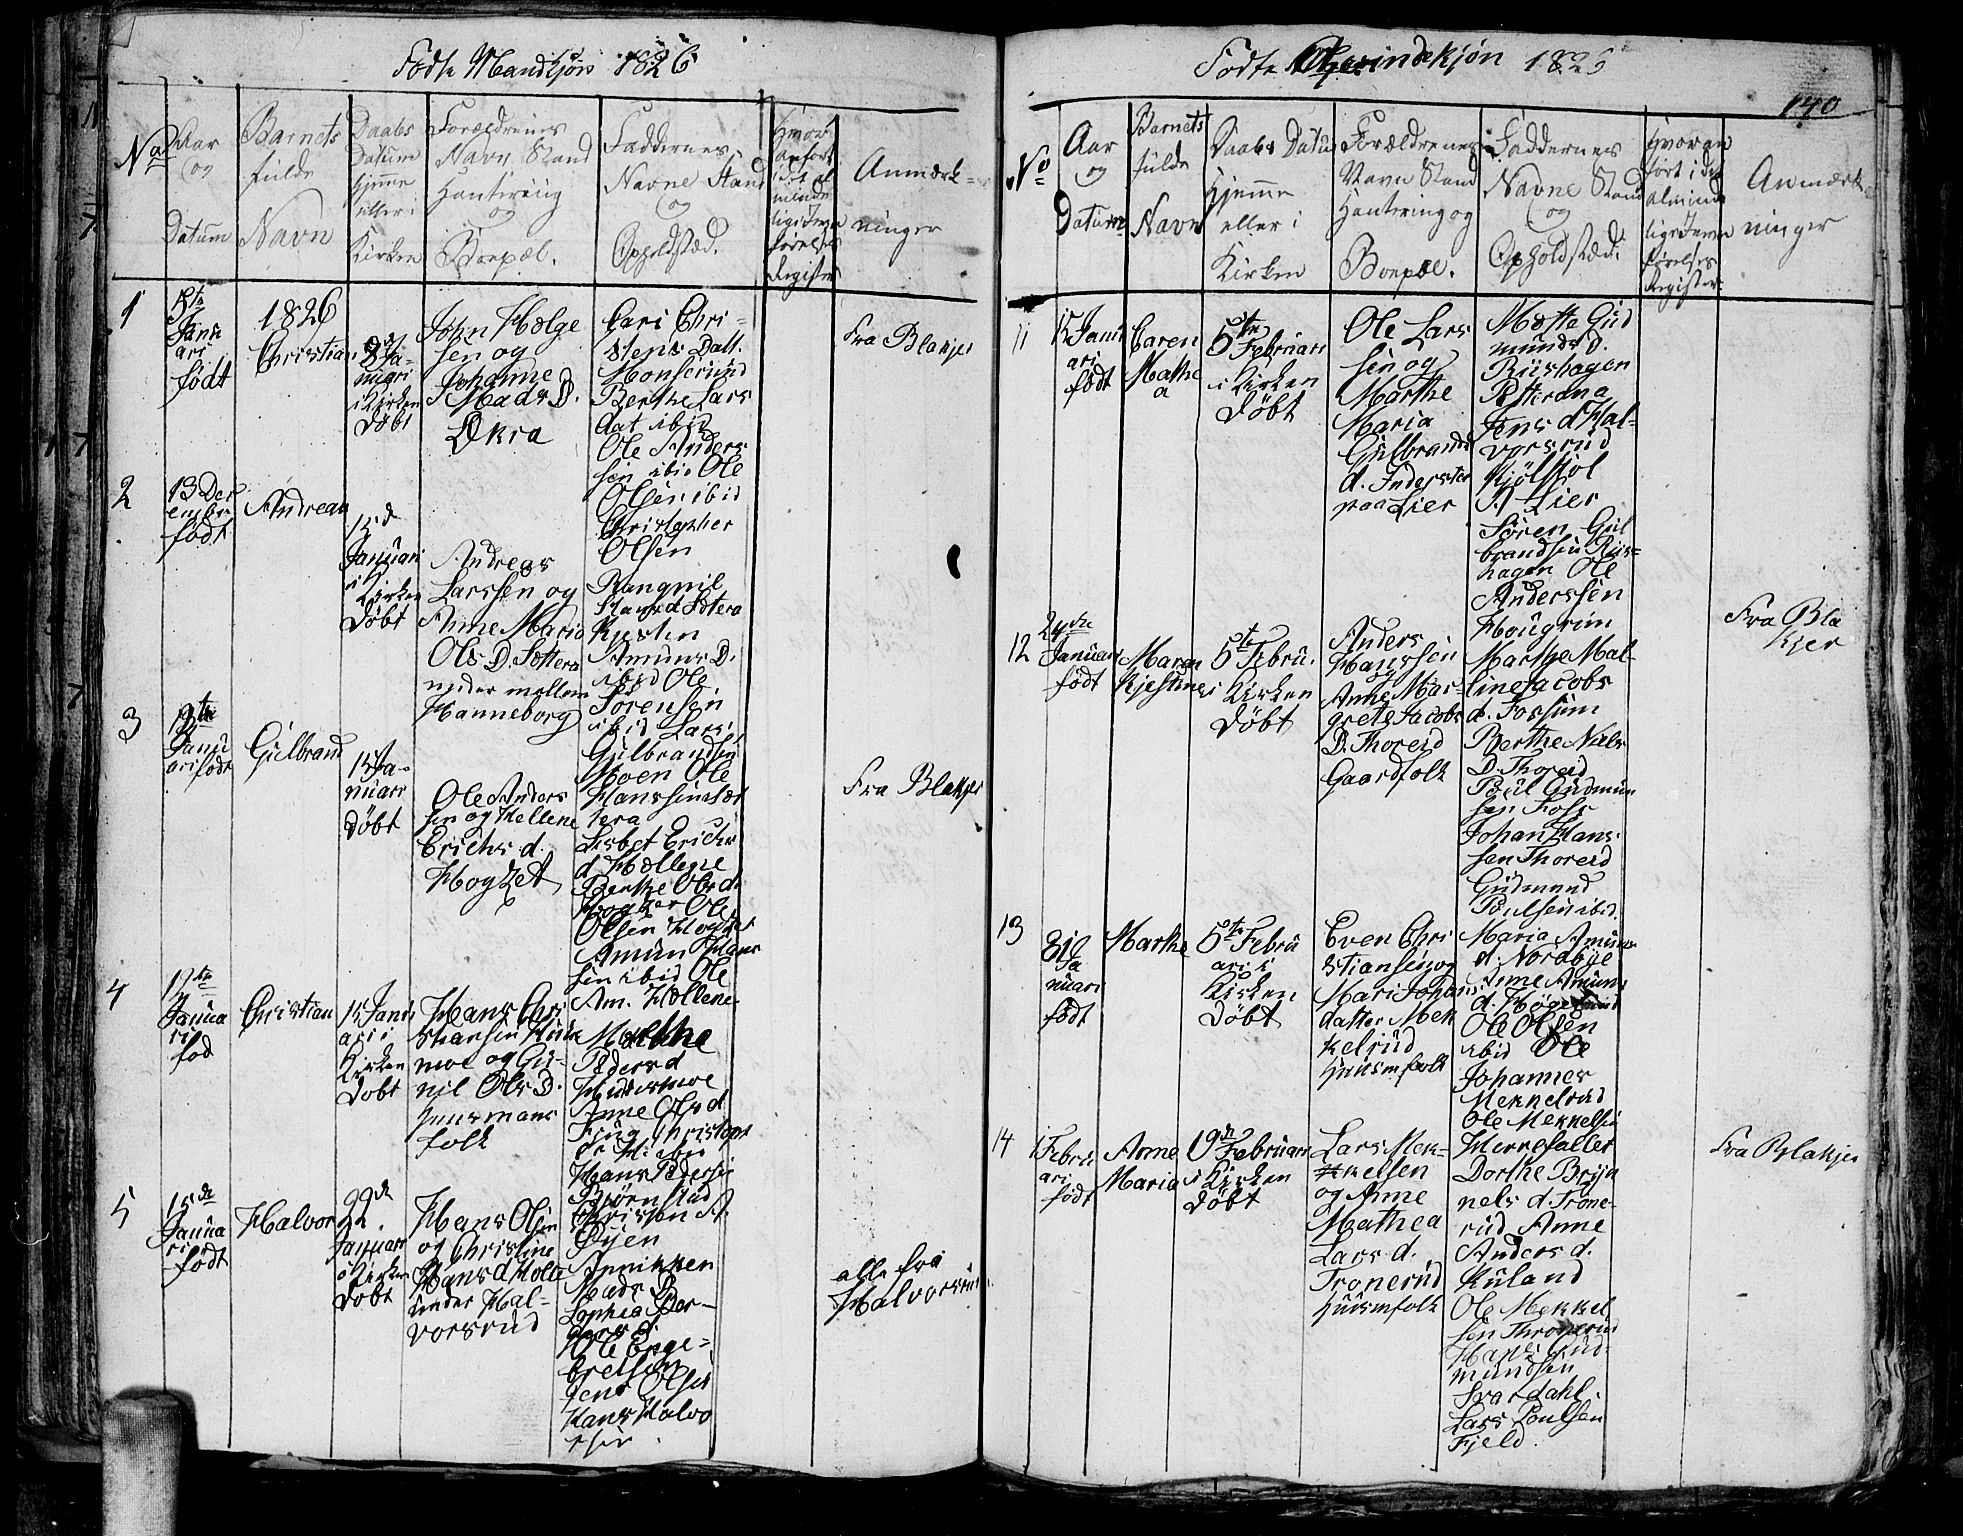 Födte Mandkjön 1826
No
Aar
og
Datum
Barnets
fulde
Navn
Daabs
Datum
Hjemme
eller i
Kirken
Forældrenes
Navn Stand
Hantiring
og
Boepæl.
Faddernes
Navne Stand
og
Opholdsted.
Hvor
anført
i det al
minde
lige Jevn
førelses
Register
Anmærk-
ninger
1
Janu
ari
födt
1826
Christian
8 Ja-
nuari
i Kirken
Döbt
John Hælge
sen og
Johanne
Mads D.
Økra
Cari Chri-
stens Datt.
Monserud
Berthe Lars
dat ibid
Ole Anders
sen ibid Ole
Olsen ibid
Christopher
Olsen
Fra Blakjer
2
13 Dec
embr
födt
Andreas
15d
Januari
i Kirken
Döbt
Andreas
Larssen og
Anne Maria
Ols D. Sættera
neder mollem
Hanneborg
Rangnil
Kjesten
Amuns D.
ibid Ole
Sörensen
ibid Lars
Gulbrandsen
Moen Ole
Hanssen Sæt
tera
3
Janu
ari födt
Gulbrand
15 Ja-
nuari
Döbt
Ole Anders
sen og Hellene
Erichs d.
Hogzet
Lisbet Erichs
d. Hollene
Berthe Ols d.
Hogzet Ole
Olsen Hogzet
Amun Hans
sen ibid Ole
Am. Hollene
Fra Blakjer
4
Janua
ri
föd
Christian
15 Janu
ari i
Kirken
Döbt
Hans Chri
stiansen
moe og Gu-
nil Ols D.
Huusmans
folk
Marthe
Peders d
Anne Ols d
Hans Pedersen
Björnstad
5
15de
Janua
ri
födt
Halvor
22.
Januari
i Kirken
Döbt
Hans Olsen
og Christine
Hans d Holle
under Hal-
vorsrud
Øyen
Annikken
Mads D.
Sophia Per-
Ole Enge-
bretsen
Jens Olsen
Hans Halvo
rsen.
alle fra
Halvorsrud
Födte Qvindekjön 1826
140
No
Aar
og
Datum
Barnets
fulde
Navn
Daabs Datum
Hjemme
eller i
Kirken
Forældrenes
Navn Stand
Hantiring og
Boepæl.
Faddernes
Navne Stand
og
Opholdsted.
Hvor an
fört i det
almind
lige Jevn
förelses
Register
Anmærk-
ninger
11
15 Janu
ari
födt
Caren
Mathe
a
5te Februari
i Kirken
Döbt
Ole Lars
sen og
Marthe
Maria
Gulbrands
d. Inderster
paa Lier
Mætte Gud
munds D.
Riishagen
Petterana
Jens d Hal-
vorsrud
Kjölstol
A. Lier
Sören Gul
brandsen Riis-
hagen Ole
Anderssen
Hougrim
12
24de
Januari
födt
Maren
Kjestine
5te Febru.
i Kirken
Döbt
Anders
Hanssen
og
Anne Mar-
grete Jacobs
D. Thoreid
Gaardfolk
Marthe Mal-
line Jacobs
d. Fossum
Berthe Niels
D. Thoreid
Poul Gudmun
sen Foss
Johan Hans
sen Thoreid
Gudmund
Poulsen ibid.
Fra Bla
kjer
13
31
Ja
nuari
födt
Marthe
5te Febru
ari i
Kirken
Döbt
Even Chri
stiansen og
Mari Johans
datter Mek
kelrud
Huusmfolk
Maria Amuns
d. Nordbye
Anne Amuns
Ole Olsen
ibid Ole
Johannes
Mekkelrud
Ole Mekkelsen
Herrefallet
14
1 Febru
ari
födt
Anne
Maria
19de Februari
i Kirken
Döbt
Lars Mek-
kelsen
og Anne
Mathea
Lars d.
Tronerud
Huusmfolk
Dorthe Bryn
nels d. Trone-
rud Anne
Anders d.
Kuland
Ole Mekkel
sen Thronerud
Hans Gud-
mundsen
Svardahl.
Lars Poulsen
Fjeld.
Fra Blakjer